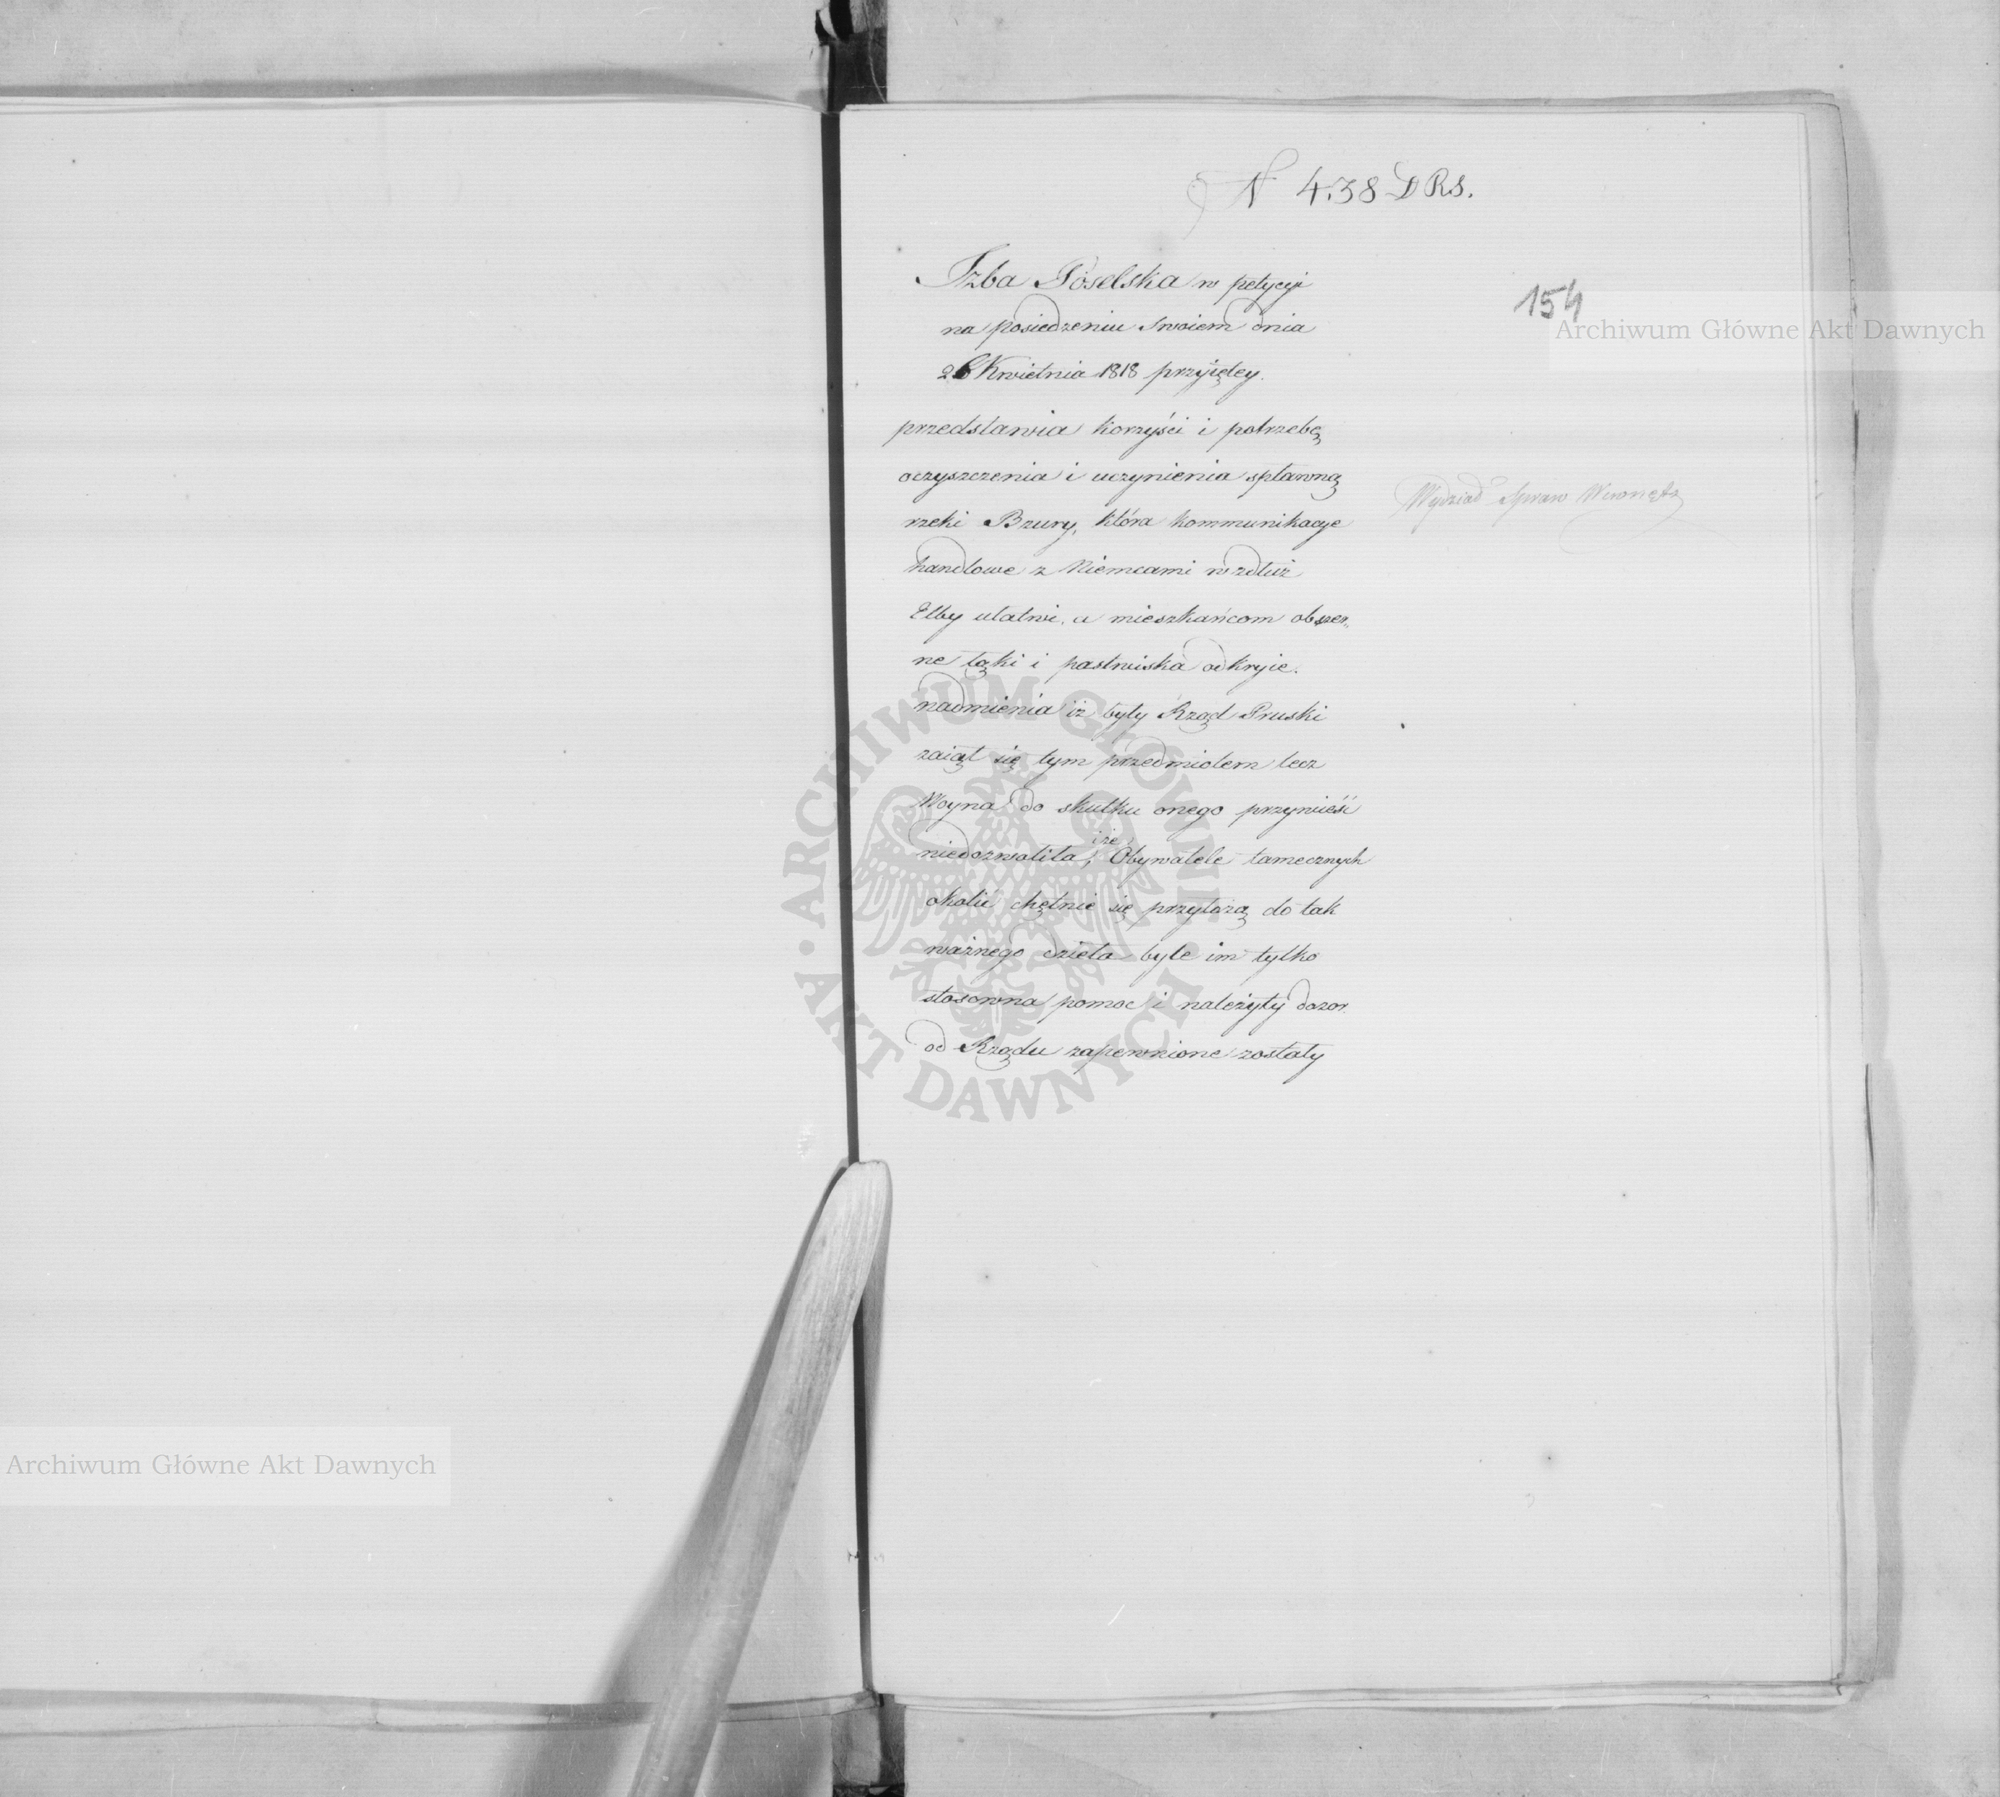 N 438 D R S.
154
Izba Poselska w petycyi
na posiedzeniu swoiem dnia
26 Kwietnia 1818 przyięley.
przedstawia korzyści i potrzebę
oczyszczenia i uczynienia spławną
rzeki Bzury, która kommunikacye
handlowe z Niemcami wzdłuż
Elby ułatwi, a mieszkańcom obszer„
ne łąki i pastwiska odkryie.
nadmienia iż były Rząd Pruski
zaiął się tym przedmiotem lecz
Woyna do skutku onego przywieść
niedozwoliła, iże Obywatele tamecznych
okolic chętnie się przyłożą do tak
ważnego dzieła byle im tylko
stosowna pomoc i należyty dozor.
od Rządu zapewnione zostały
Wydział Spraw Wewnętz
Archiwum Główne Akt Dawnych
Archiwum Główne Akt Dawnych
ARCHIWUM GŁÓWNE · AKT DAWNYCH ·